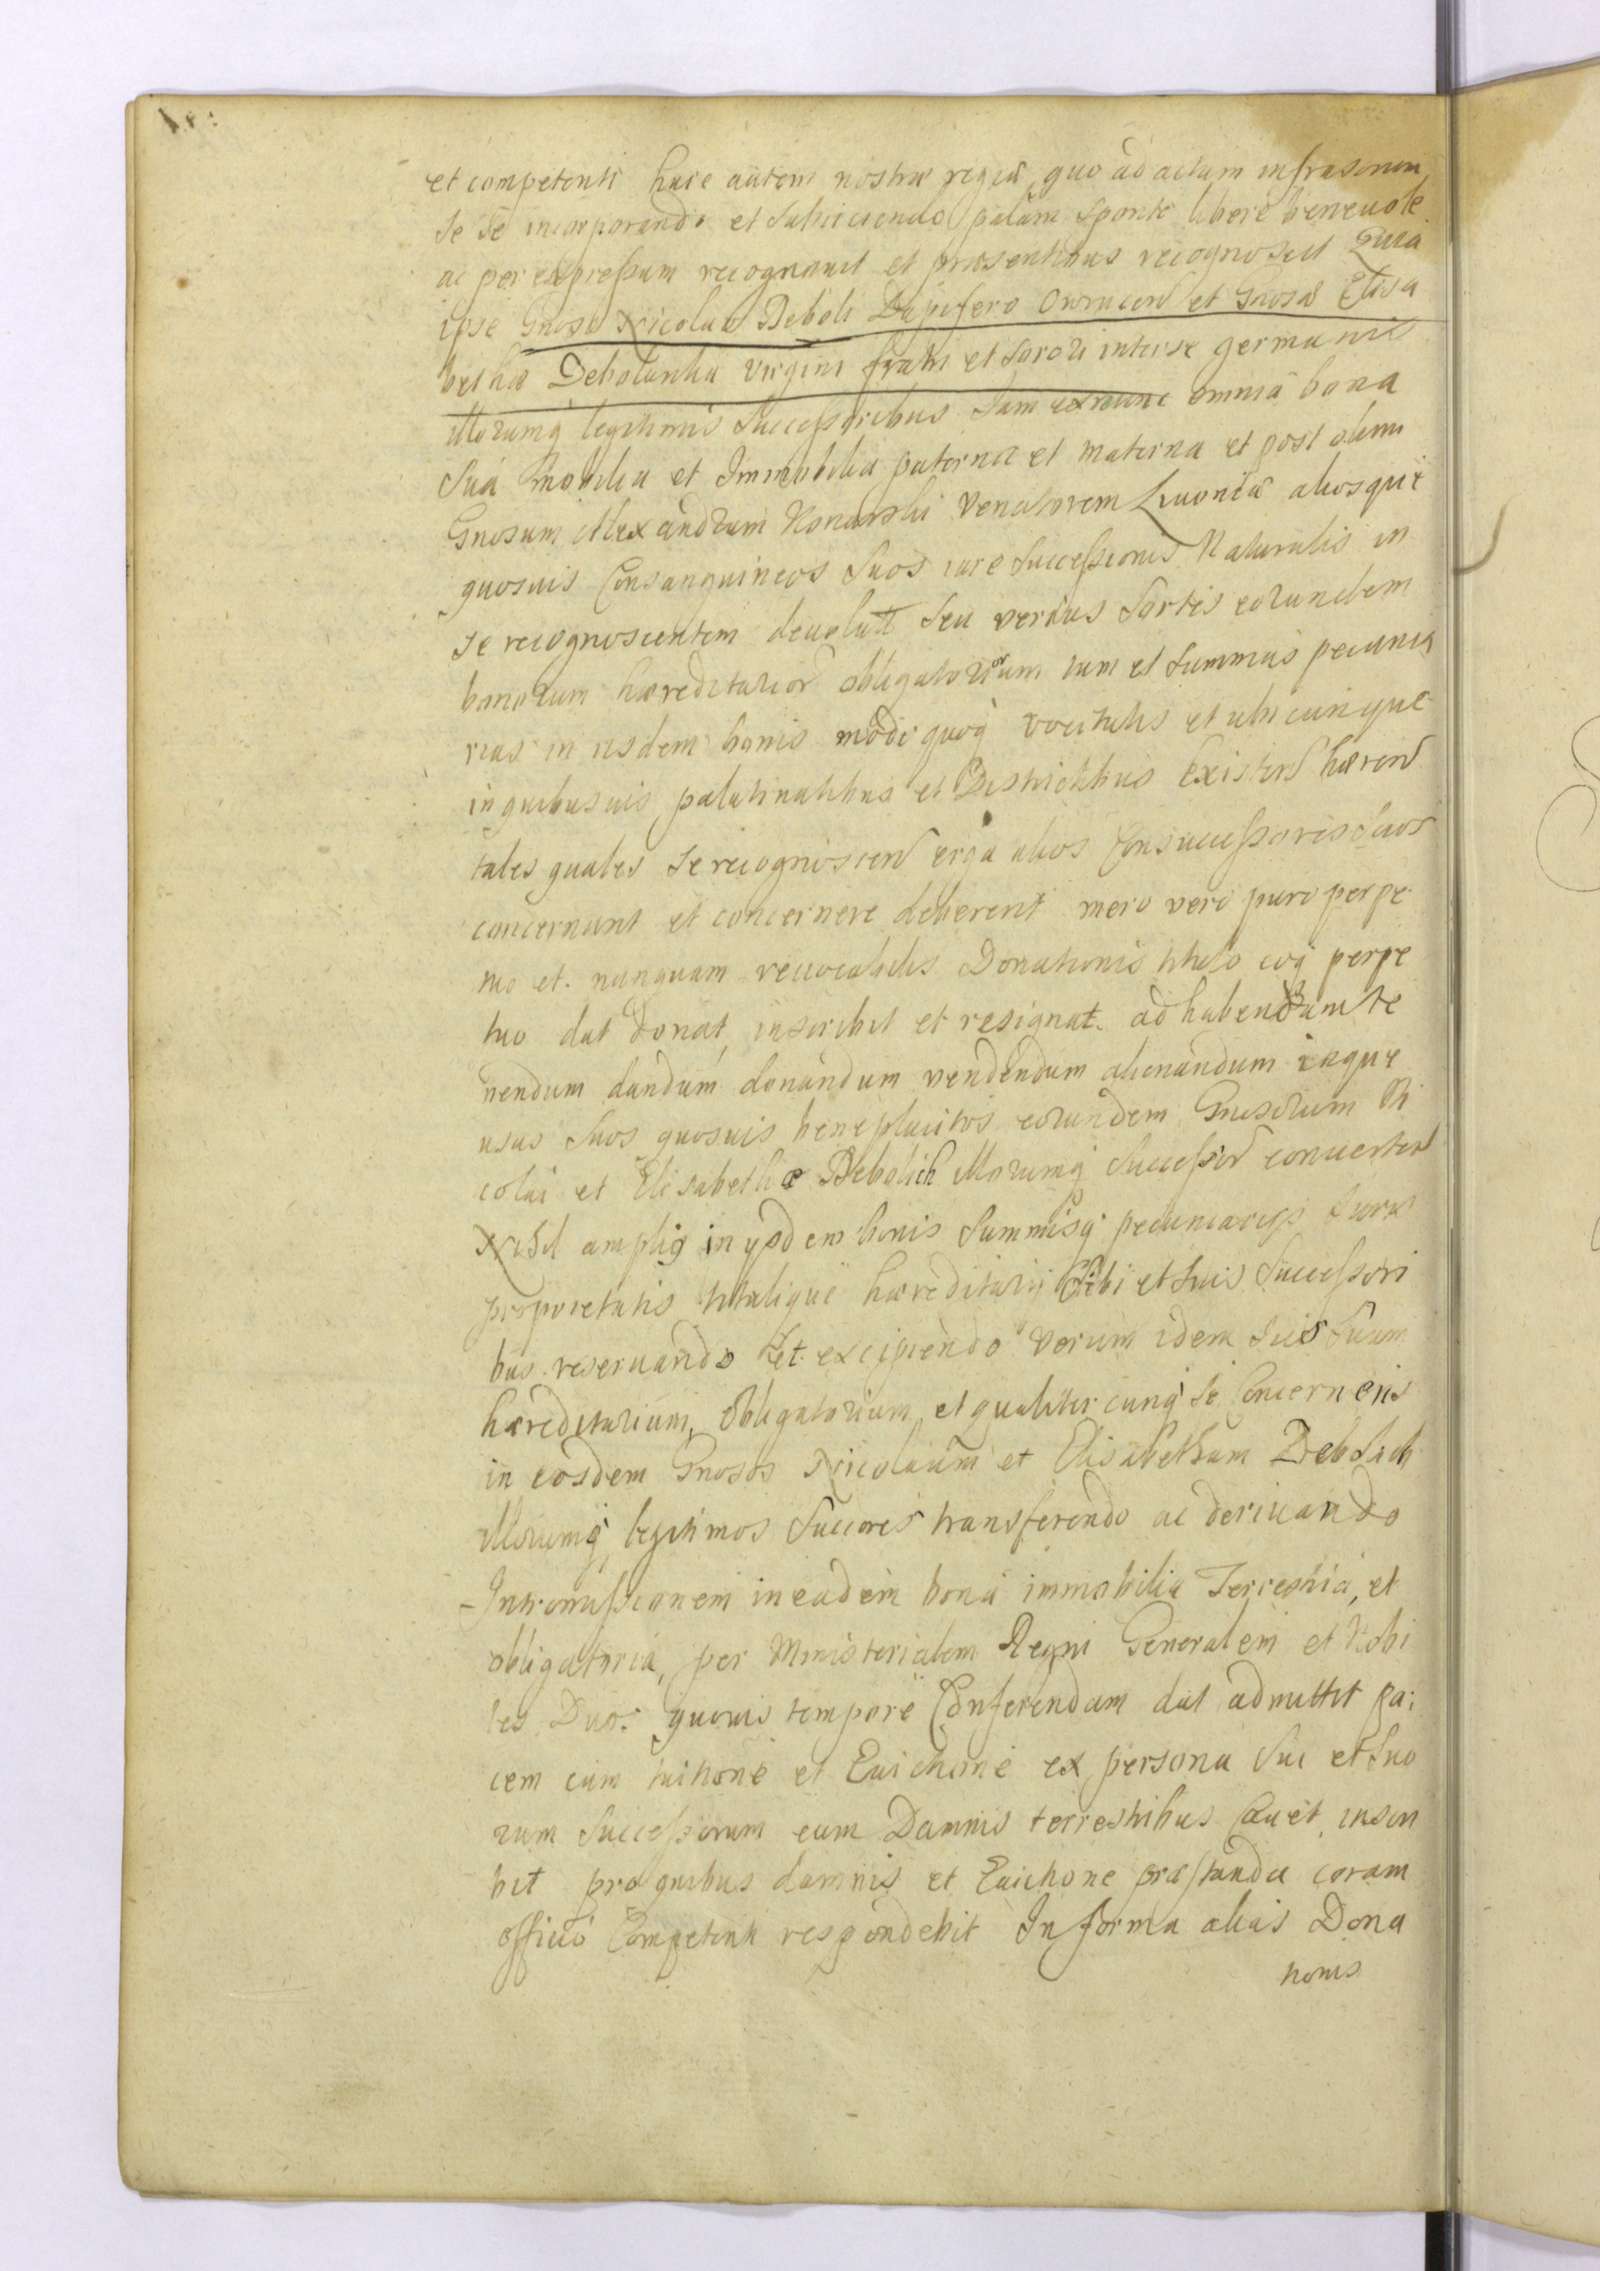 et competenti hucè autem nostræ regiæ quo ad actum infrascrium
se se incorporando et subiiciendo palam sponte liberè beneuole
ac per expressum recognouit et præsentibus recognoscit Quia
ipse Gnoso Nicolao Deboli Dapifero Owrucen et Gnosæ Elisa
bethæ Debolanka virgini fratri et sorori interse germanis
illorumq legitimis successoribus iam exnunc omnia bona
sua mobilia et Immobilia paterna et materna et post olim
Gnosum Alexandrum Konarski Venatorem Liuoniæ aliosque
quosuis Consanguineos suos iure successionis Naturalis in
se recognoscentem deuolut seu verius sortes eorundem
bonorum hæreditarior obligatoriorum tum et summas pecunia
rias in iisdem bonis modo quoq vocitatis et ubicunque
in quibusuis palatinatibus et Districtibus existen hæren
tales quales se recognoscen erga alios Consuccessores suos
concernunt et concernere deberent mero vero puro perpe
tuo et nunquam reuocabilis Donationis titulo eoq perpe
tuo dat donat inscribit et resignat ad habendum te
nendum dandum donandum vendendum alienandum inque
usus suos quosuis beneplacitos eorundem Gnosorum Ni
colai et Elisabethæ Debolich illorumq successor conuerten
Nihil ampliq in ysdem bonis summisq pecuniarys Iuris
proprietatis titulique hæreditarij sibi et suis successori
bus reseruando et excipiendo verum idem Ius suum
hæreditarium, obligatorium et qualitercunq se concernens
in eosdem Gnosos Nicolaum et Elisabetham Debolich
illorumq legitimos succores transferendo ac deriuando
Intromissionem in eadem bona immobilia Terrestria, et
obligatoria, per Ministerialem Regni Generalem et Nobi
les Duos quouis tempore Conferendam dat admittit pa:
cem cum tuitione et Euictione ex persona sui et suo
rum successorum cum Damnis terrestribus Cauet inscri
bit pro quibus damnis et Euictione præstanda coram
officio Competenti respondebit In forma alias Dona
tionis